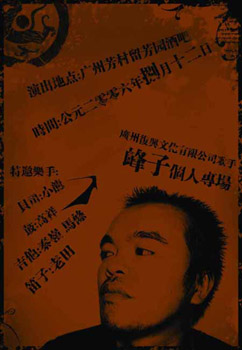 演出地点:广州芳村留芳园酒吧
時間:公元二零零六年捌月十二日
廣州復興文化有限公司歌手
峰子 個人專場
特邀樂手:
貝司:小熊
鼓:高祥
吉他:秦嶺 馬絲
笛子:老田